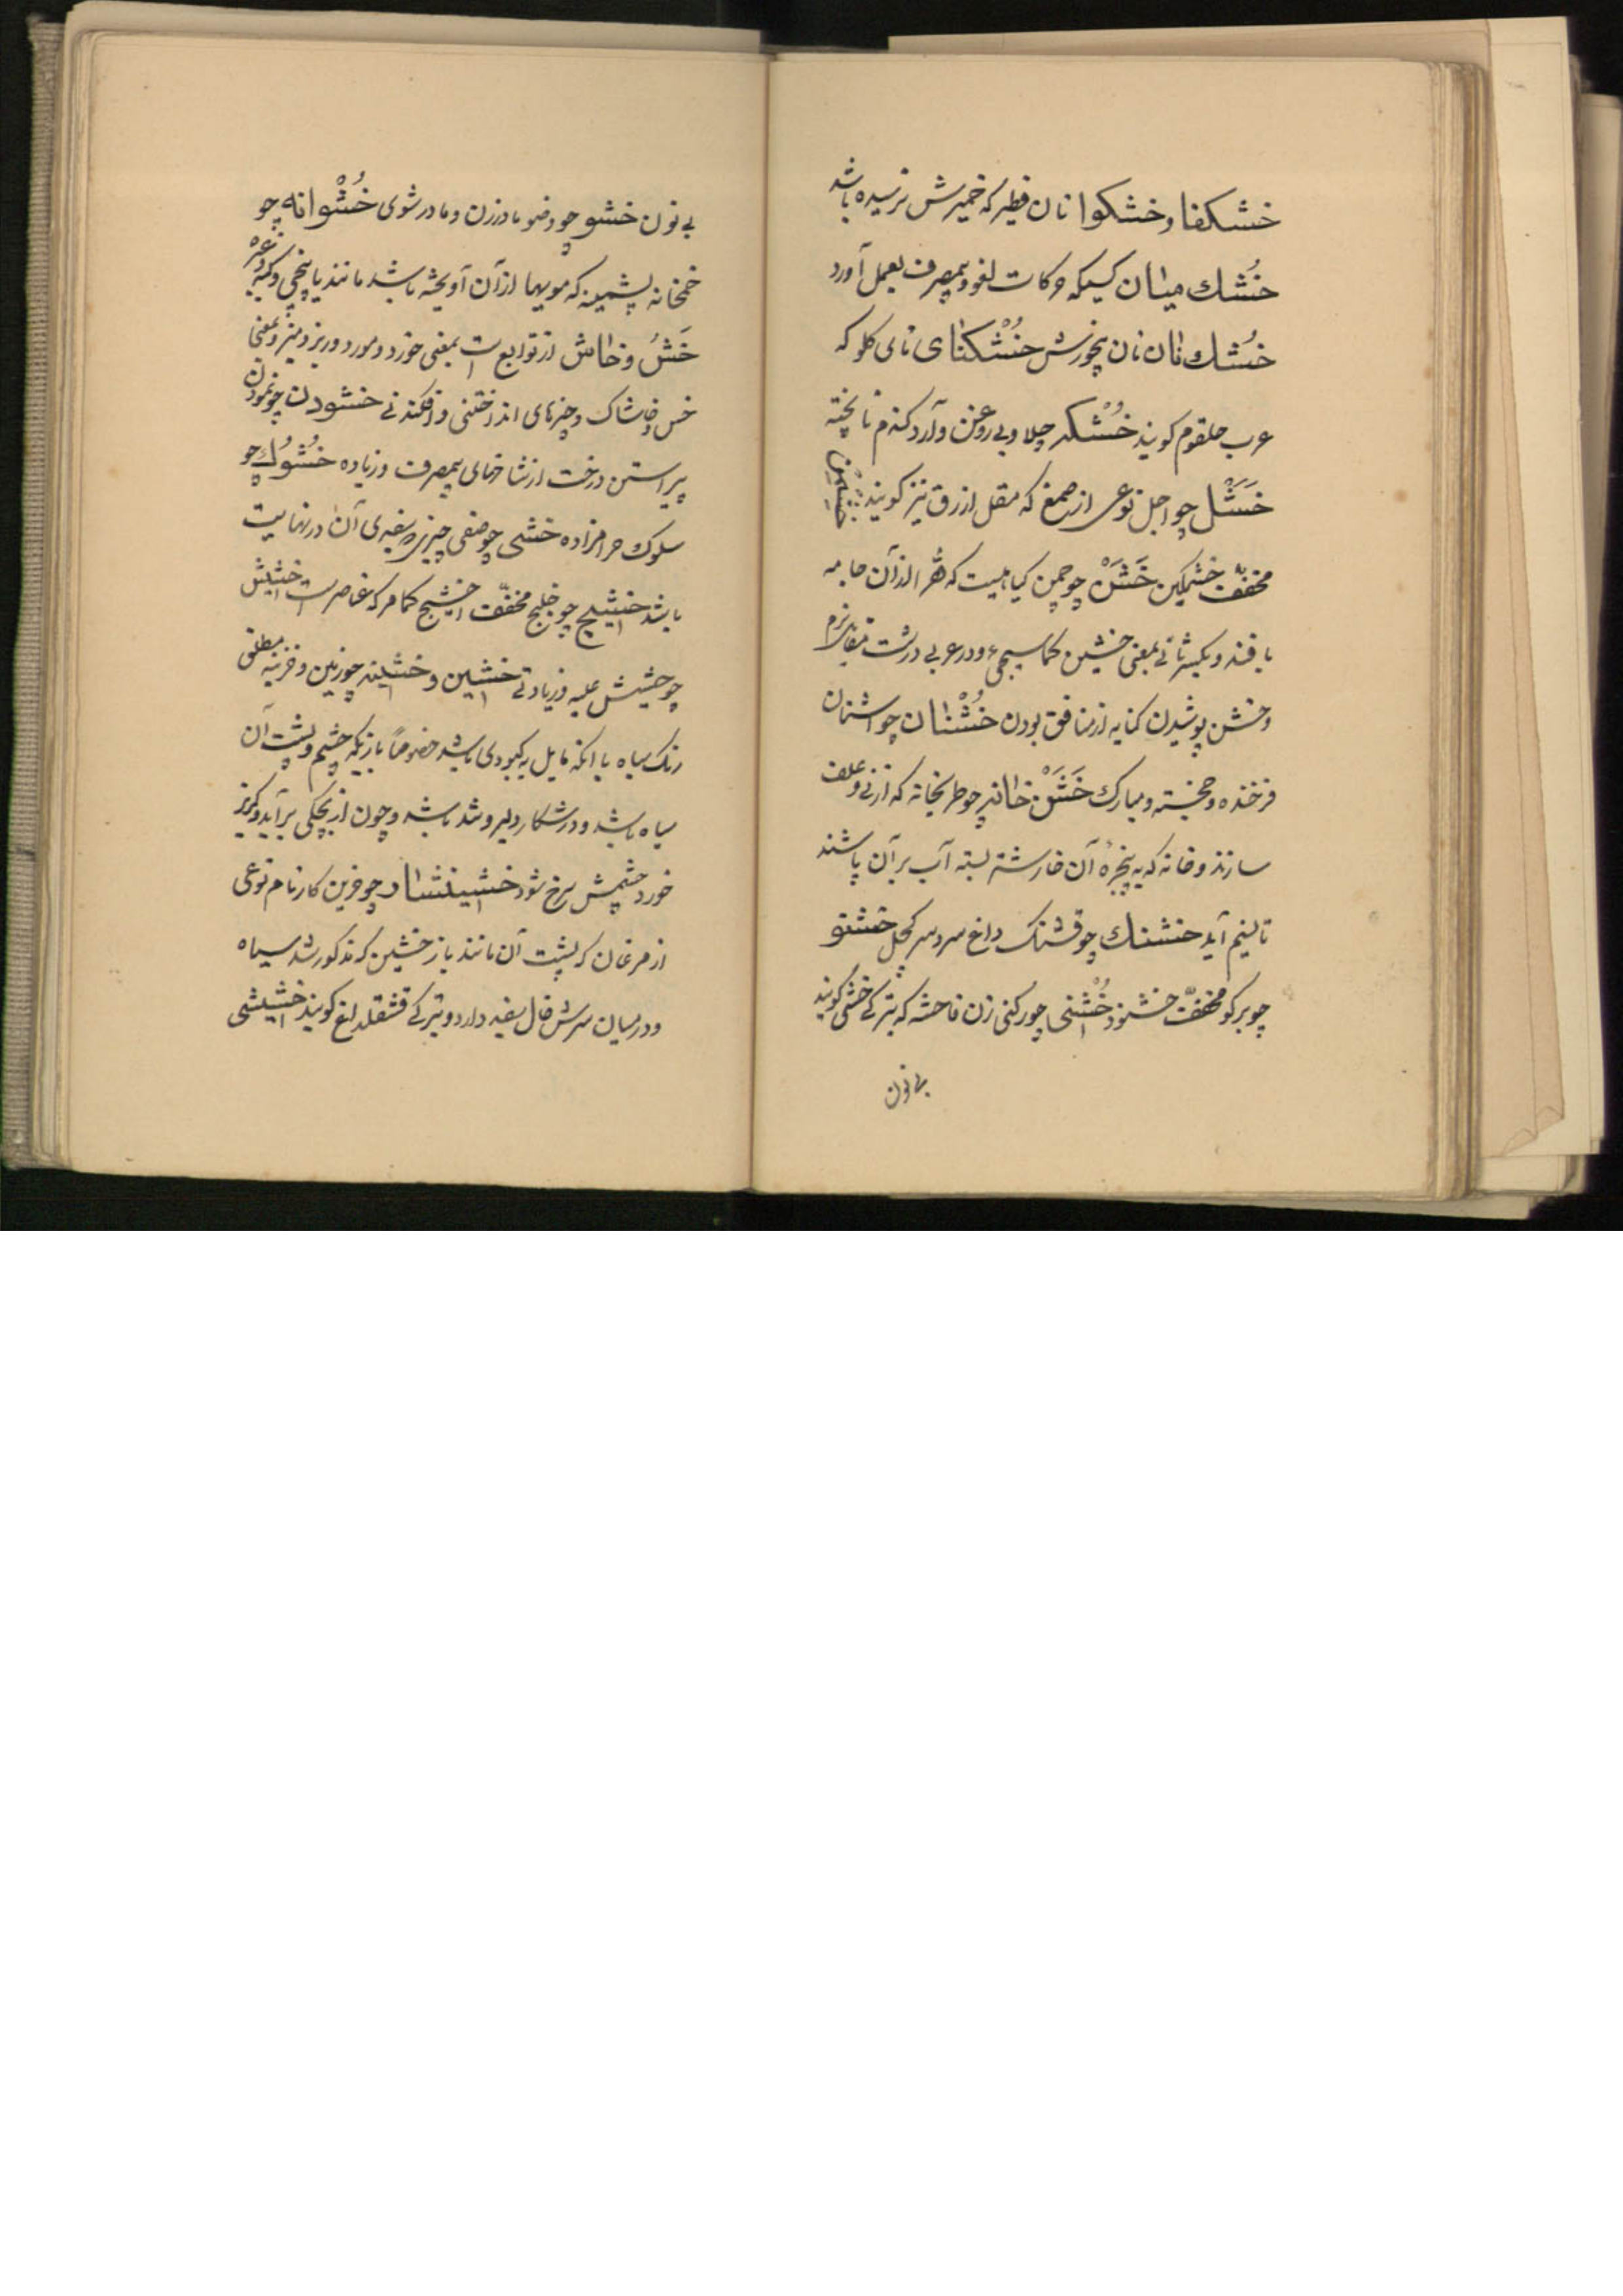 خشکفا و خشکوا نان فطیر که خمیرش نرسیده باشد
خُشك میان کسیکه حرکات لغو و بیمصرف بعمل آورد
خُشك نان نان بیخورش خُشْکنای نای کلو که
عرب حلقوم کویند خُشْکه چلاو بی روغن و آرد کندم نا پخته
خَشَل چو اجل نوعی از صمغ که مقل ازرق نیز کویند
مخفّف خشمکین خَشَنْ چو چمن کیاهیست که فقرا از آن جامه
بافند و بکسر ثانی بمعنی خشین کماسیجیء و در عربی درشت مقابل نرم
و خشن پوشیدن کنایه از منافق بودن خُشْنان چو اشنان
فرخنده و خجسته و مبارك خَشَنْ خانه چو طربخانه که از نی و علف
سازند و خانه که به پنجرهٔ آن خار شتر بسته آب بر آن پاشند
تا نسیم آید خشنك چو قشنک داغ سر و سر کچل خشنو
چو برکو مخفّف خشنود خُشْنی چو رکنی زن فاحشه که بترکی خشی کویند
بی نون
بی نون خشو چو وضو مادرزن و مادر شوی خُشْوانه چو
خمخانه پشمینه که مویها از آن آویخته باشد مانند پاپیچی و کپه و غیره
خَشُ و خاش از توابع است بمعنی خورد و مورد و ریز و میز و بمعنی
خس و خاشاک و چیزهای انداختنی و افکندنی خشودن چو نمودن
پیراستن درخت از شاخهای بیمصرف و زیاده خُشُوك چو
سلوك حرامزاده خشی چو صفی چیزی که سفیدی آن در نهایت
باشد خشیج چو خلیج مخفّف اخشیج کمامر که عناصر است خشیش
چو حشیش علیه و زیادتی خشین و خشینه چو زمین و خزینه مطلق
رنک سیاه یا انکه مایل به کبودی باشد خصوصاً بازیکه چشم و پشت آن
سیاه باشد و در شکار دلیر و تند باشد و چون از بچکی برآید و کریز
خورد چشمش سرخ شود خشینشار چو فرین کار نام نوعی
از مرغان که پشت آن مانند باز خشین که مذکور شد سیاه
و در میان سرش خال سفید دارد و بترکی قشقلداغ کویند خشیشی